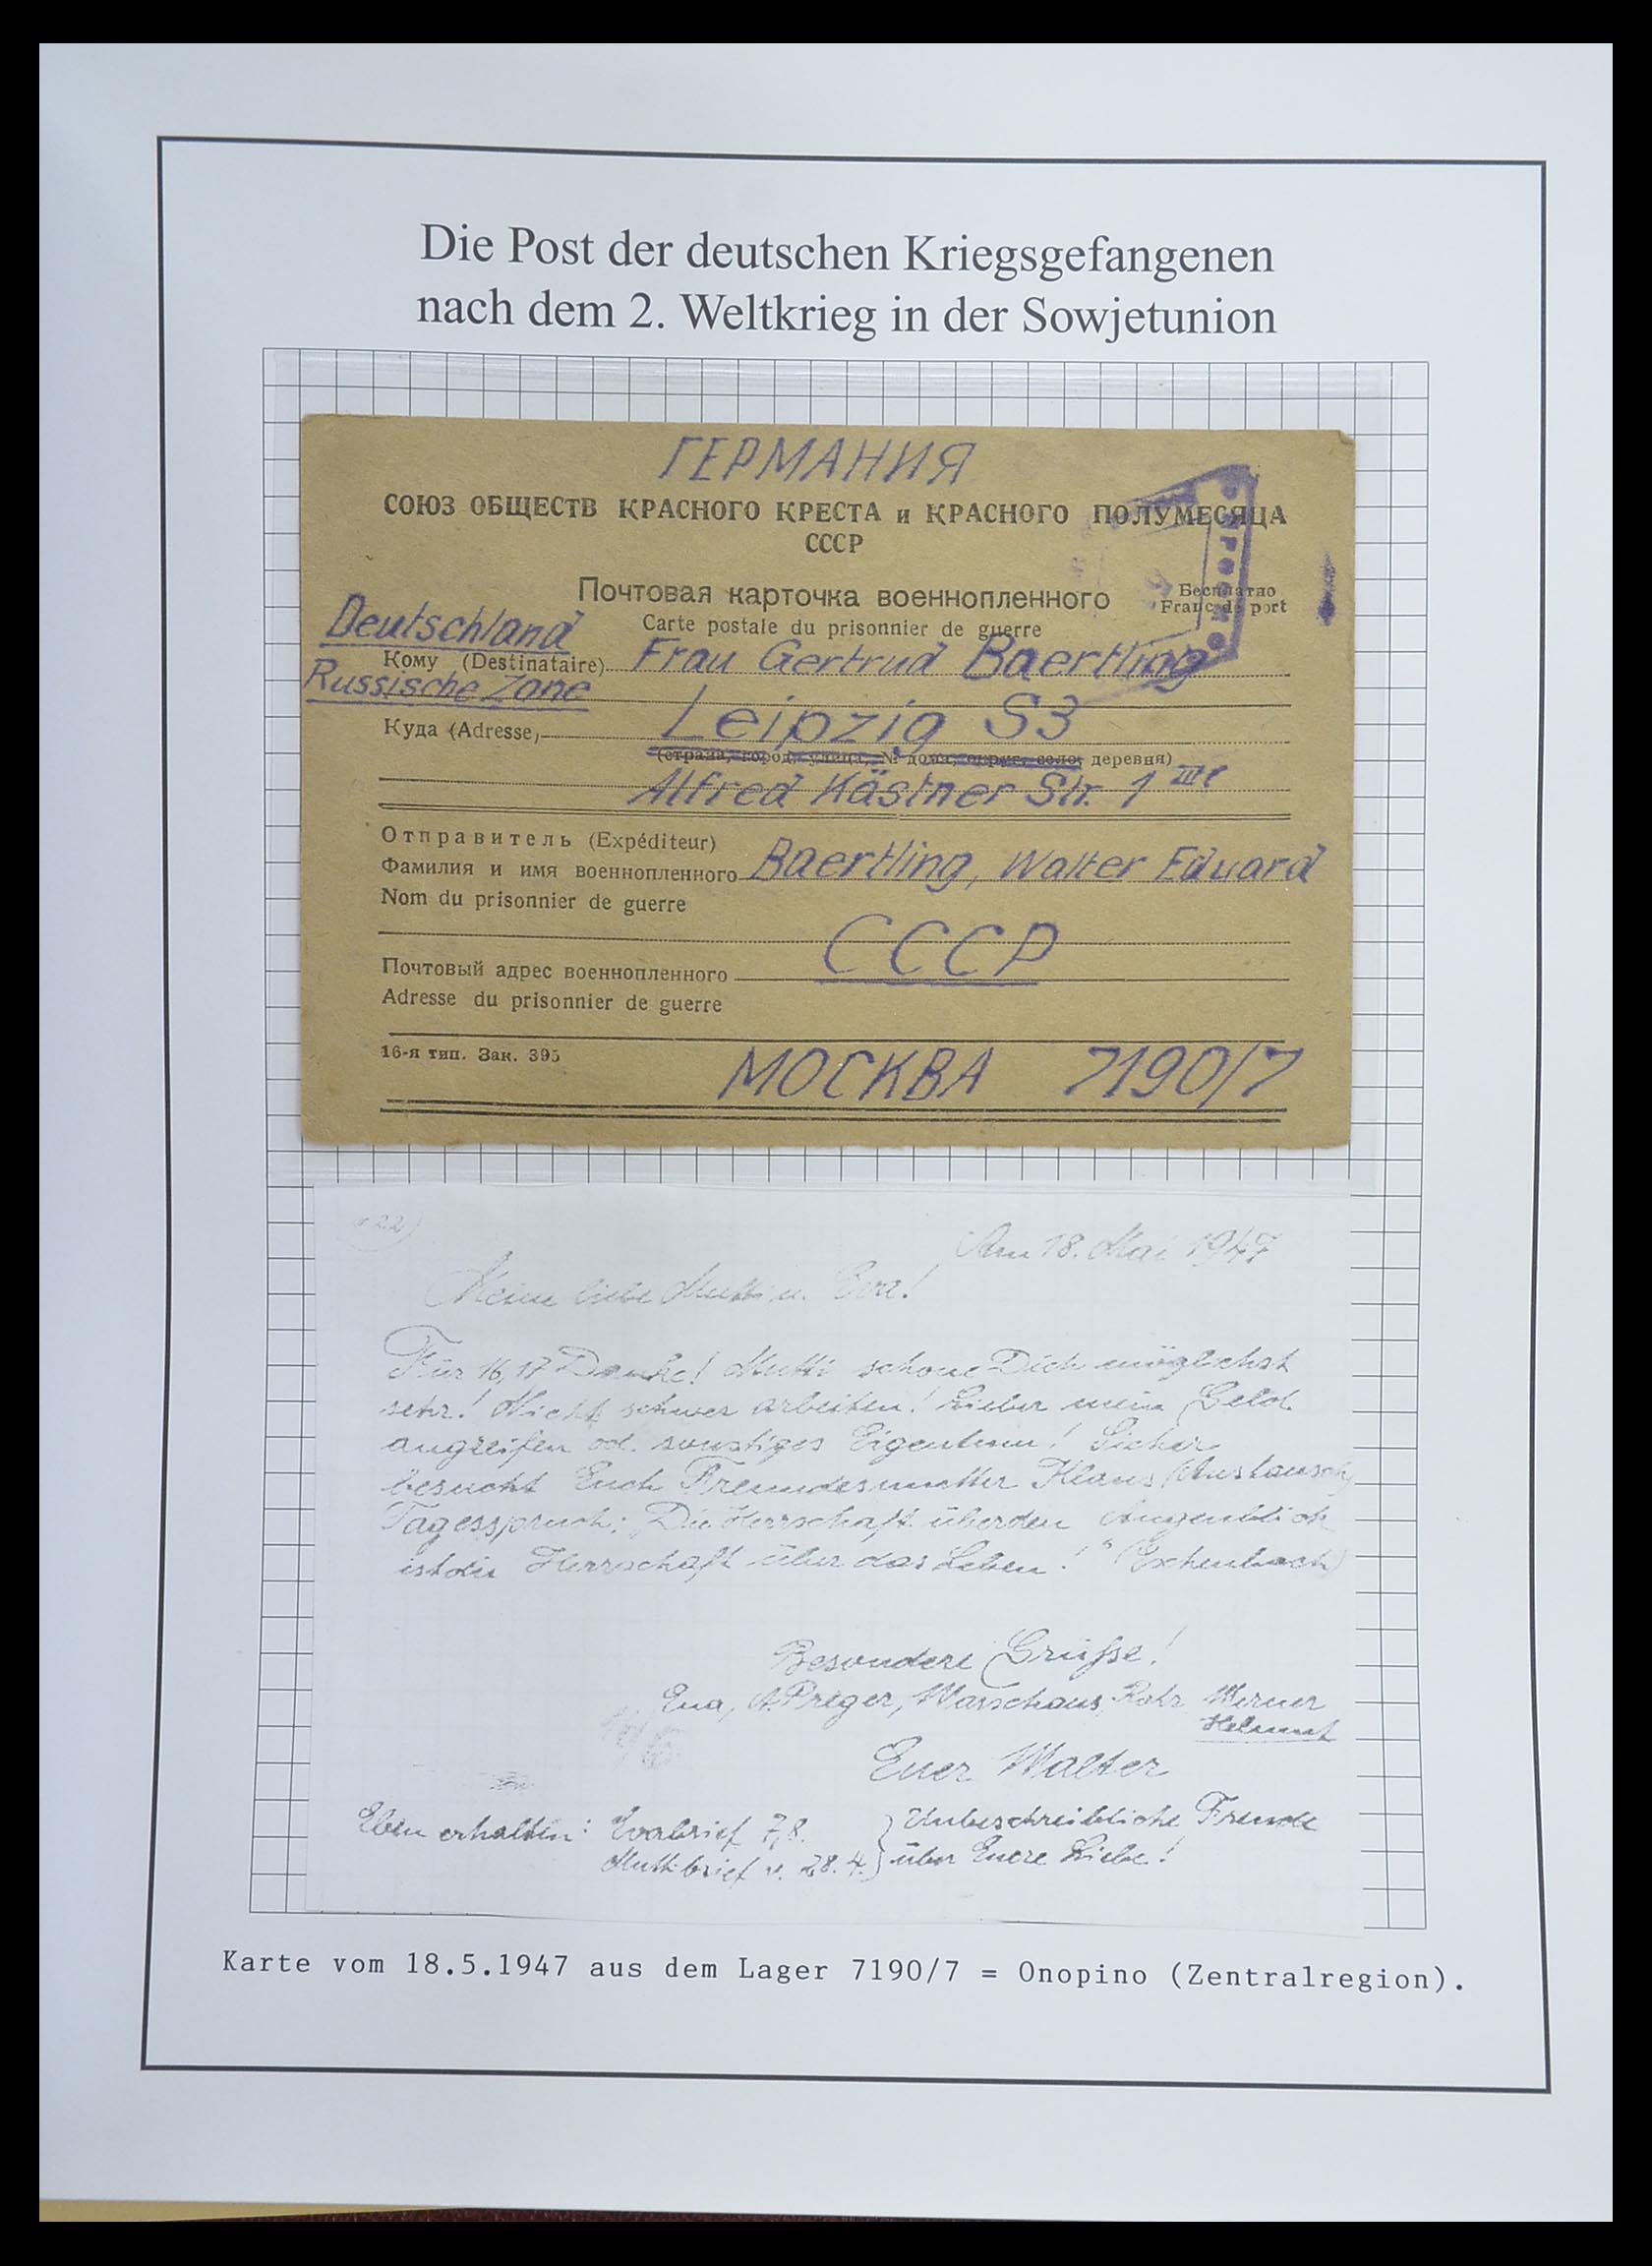 Die Post der deutschen Kriegsgefangenen
nach dem 2. Weltkrieg in der Sowjetunion
ГЕРМАНИЯ
СОЮЗ ОБЩЕСТВ КРАСНОГО КРЕСТА и КРАСНОГО ПОЛУМЕСЯЦА
СССР
Почтовая карточка военнопленного
Бесплатно
Carte postale du prisonnier de guerre
Franc de port
Deutschland
Кому (Destinataire) Frau Gertrud Baertling
Russische Zone
Куда (Adresse) Leipzig S3
(страна, город, улица, № дома, округ, село, деревня)
Alfred Kästner Str. 1 III
Отправитель (Expéditeur)
Фамилия и имя военнопленного Baertling, Walter Eduard
Nom du prisonnier de guerre
СССР
Почтовый адрес военнопленного
Adresse du prisonnier de guerre
16-я тип. Зак. 395
МОСКВА 7190/7
22)
Am 18. Mai 1947
Meine liebe Mutti u. Eva!
Für 16, 17 Danke! Mutti schone Dich möglichst
sehr! Nicht schwer arbeiten! Lieber mein Geld
angreifen od. sonstiges Eigentum! Sicher
besucht Euch Freundesmutter Klaus (Austausch)
Tagesspruch: „Die Herrschaft über den Augenblick
ist die Herrschaft über das Leben!" (Eschenbach)
Besondere Grüße!
Eua, A. Preger, Warschaus, Rohr Werner
Helmut
Euer Walter
Eben erhalten: Evabrief 7,8. } Unbeschreibliche Freude
Muttibrief v. 28.4. } über Euere Liebe!
Karte vom 18.5.1947 aus dem Lager 7190/7 = Onopino (Zentralregion).